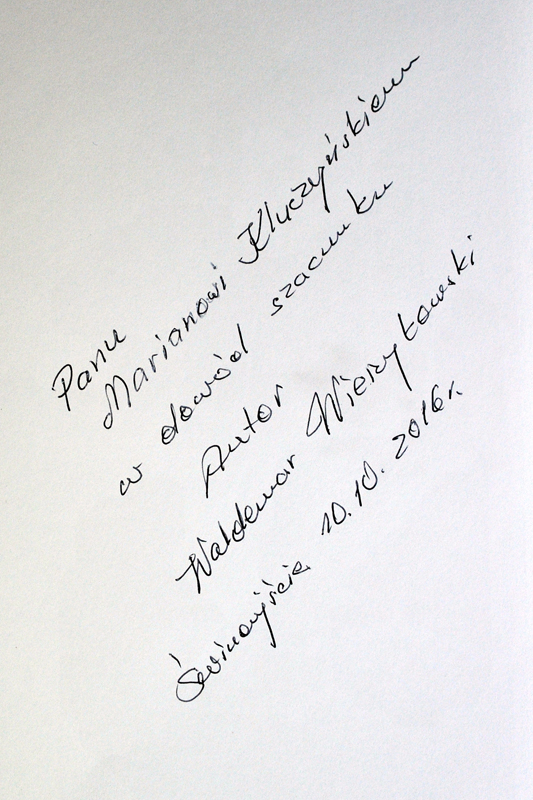 Panu
Marianowi Kluczyńskiemu
w dowód szacunku
Autor
Waldemar
Świnoujście 10.10.2016r.